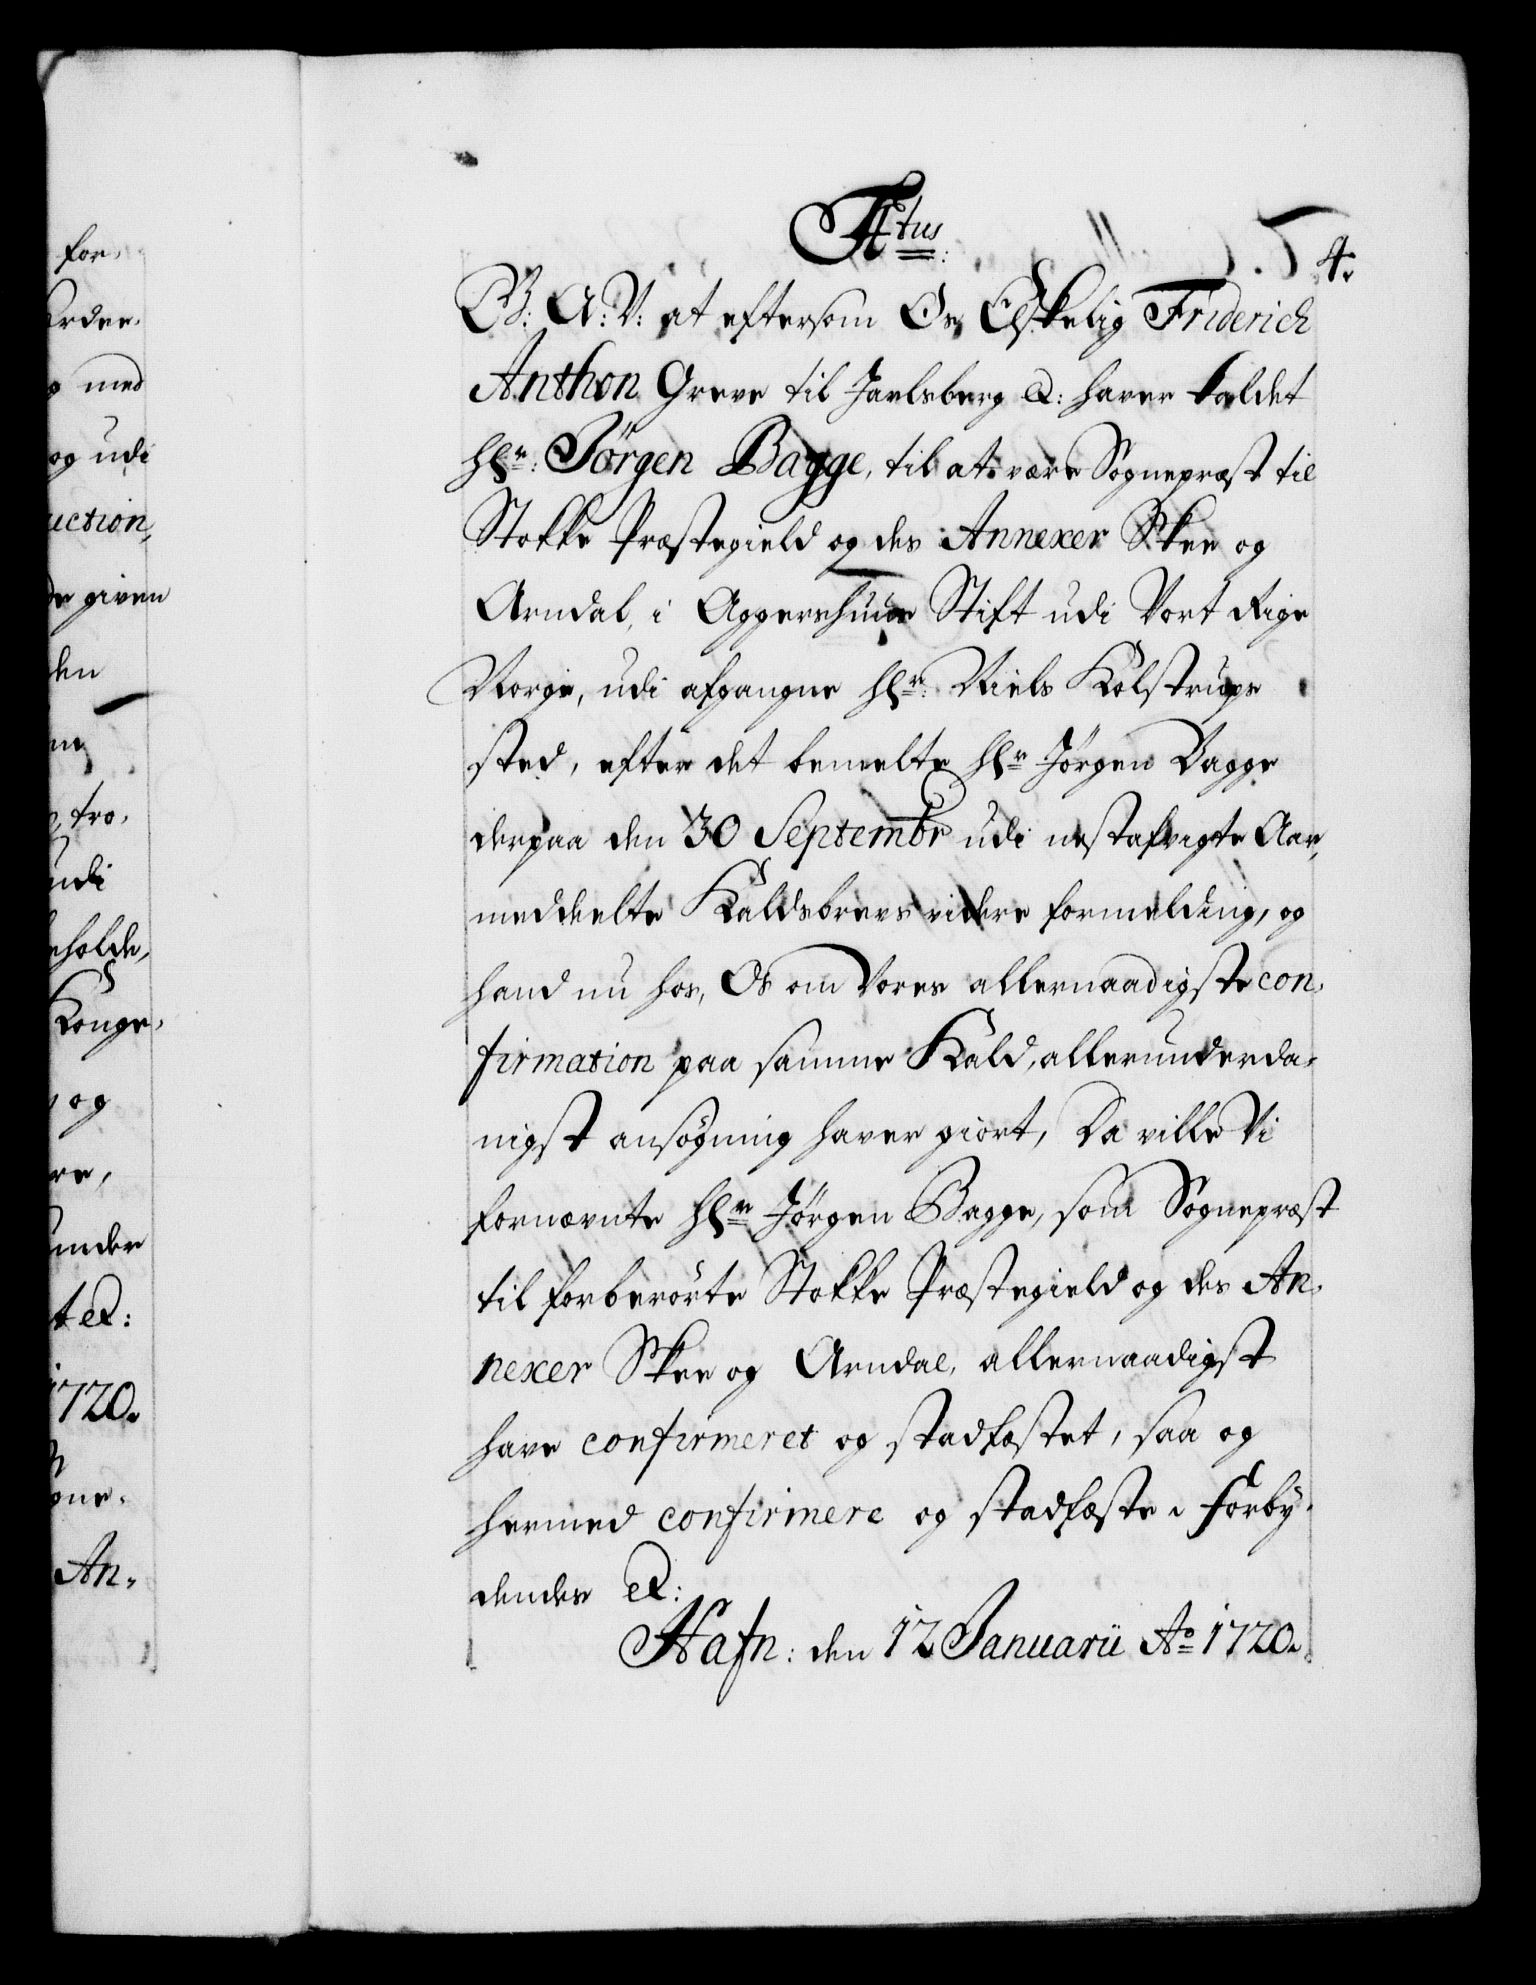 F4tus.
4.
G: A: V: at eftersom Os Elskelig Friderich
Anthon Greve til Jarlsberg &: haver kaldet
Hr: Jörgen Bagge, til at være Sognepræst til
Stokke Præstegield og des Annexer Skee og
Arndal, i Aggershuus Stift udi Vort Rige
Norge, udi afgangne Hr: Niels Kolstrups
sted, efter det bemelte Hr Jörgen Bagge
derpaa den 30 Septembr udi nestafvigte Aar,
meddeelte Kaldsbrevs videre formelding, og
hand nu hos, Os om Vores allernaadigste con,
firmation paa samme Kald, allerunderda,
nigst ansögning haver giort, Da ville Vi
fornævnte Hr Jörgen Bagge, som Sognepræst
til forberörte Stokke Præstegield og des An,
nexer Skee og Arndal, allernaadigst
have confirmeret og stadfæstet, saa og
hermed confirmere og stadfæste. Forby,
dendes &:
Hafn: den 12 Januarii Ao 1720.
for,
med
og udi
uction,
de given
den
tro,
udi
eholde,
Konge,
og
re,
under
t &:
1720.
one,
An,